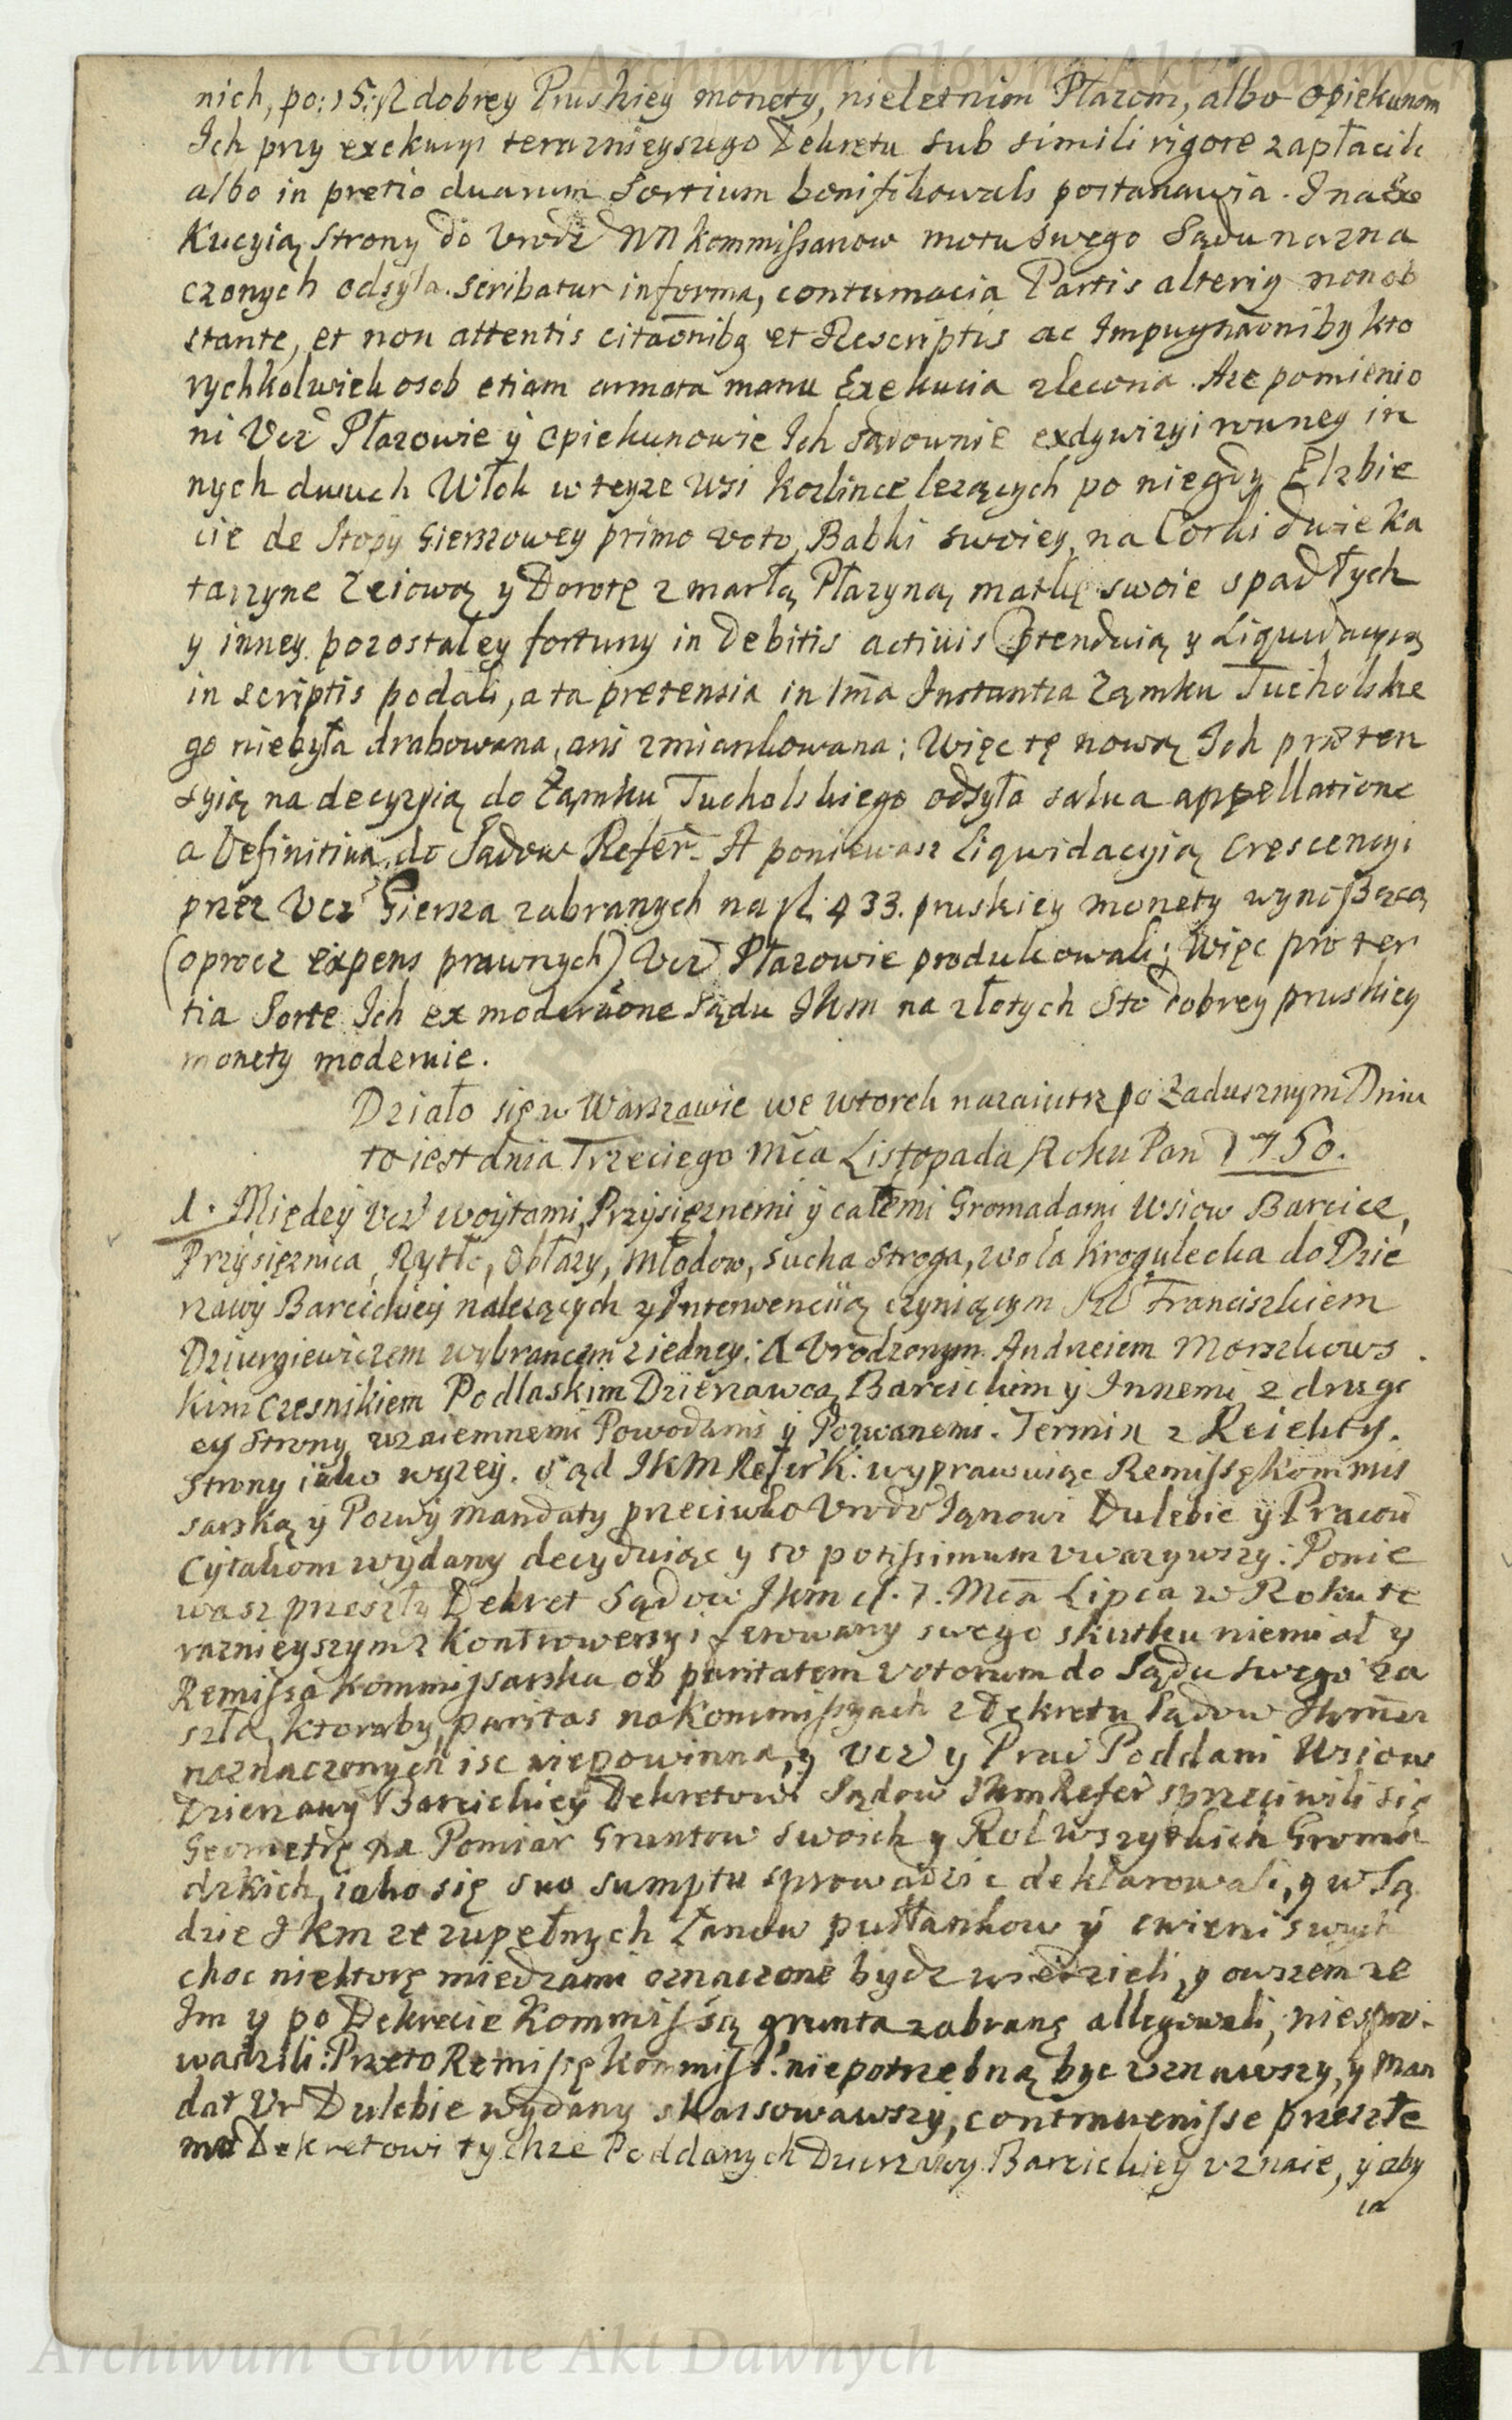 Archiwum Główne Akt Dawnych
nich, po: 15: zł dobrey Pruskiey monety, nieletnim Płazom, albo opiekunom
Ich przy exekucyi teraznieyszego Dekretu sub simili rigore zapłacili
albo in pretio duarum Sortium bonifikowali postanawia. I na Exe
kucyią Strony do Urodz NN kommissarzow motu swego Sądu nazna
czonych odsyła. scribatur in forma, contumacia Partis alterig non ob
stante, et non attentis citaõnibg et Rescriptis ac Impugnaõnibg kto
rychkolwiek osob etiam armata manu Exekucia zlecona. Aze pomienio
ni Ucz Płazowie y opiekunowie Ich sądownie exdywizyi rowney in
nych dwuch Włok w teyze wsi Kozlince lezących po niegdy Elzbie
cie de Stopy Gierszowey primo voto, Babki swoiey, na Corki dwie Ka
tarzyne Zeiową y Dorotę zmarłą Płazyną, matkę swoie spadłych
y inney pozostałey fortuny in Debitis activis Ptenduią y Liquidacyią
in scriptis podali, a ta pretensia in Ima Instantia Zamku Tucholskie
go niebyła drabowana, ani zmiankowana; Więc tę nową Ich præten
syią na decyzyią do Zamku Tucholskiego odsyła salva appellatione
a Definitiva, do Sądow Refer. A poniewasz Liqwidacyią Crescencyi
przez Ucz Giersza zabranych na zł 433. pruskiey monety wynoszącą
(oprocz expens prawnych) Ucz Płazowie produkowali; Więc pro ter
tia Sorte Ich ex moderaõne Sądu JKm na złotych Sto dobrey pruskiey
monety moderuie.
Działo się w Warszawie we wtorek nazaiutrz po Zadusznym Dniu
to iest dnia Trzeciego Mca Listopada Roku Pan 1750.
1. Między Ucz woytami, Przysięznemi y całemi Gromadami Wsiow Barcice,
Przysięznica, Rytło, Obłazy, Młodow, Sucha Stroga, wola Krogulecka do Dzie
rzawy Barcickiey nalezących y Interwencyią czyniącym Franciszkiem
Dziurgiewiczem wybrancem z iedney: A Urodzonym Andrzeiem Morszkows
kim Czesnikiem Podlaskim Dzierzawcą Barcickim y Innemi z drugi
ey Strony wzaiemnemi Powodami y Pozwanemi. Termin z Reiekty.
Strony iako wyzey. Sąd JKM Refer K: wyprawuiąc Remissę Kommis
sarską y Pozwy mandaty przeciwko Urodz Janowi Dulebie y Pracow
Cytakom wydany decyduiąc y to potissimum uwazywszy: Ponie
wasz przeszły Dekret Sądow JKm d. 7. Mca Lipca w Roku te
raznieyszym z Kontrowersyi ferowany swego skutku niemiał y
Remissa Kommissarska ob paritatem votorum do Sądu swego za
szła, ktoraby paritas na Kommissyach z Dekretu Sądow JKm
naznaczonych isc niepowinna, y Ucz y Prac Poddani Wsiow
Dzierzawy Barcickiey Dekretowi Sądow JKm Refer sprzeciwili się
Geometrę na Pomiar Gruntow swoich y Rol wszystkich Groma
dzkich, iako się suo sumptu sprowadzic deklarowali, y w Są
dzie JKm ze zupełnych Łanow pułłankow y cwierci swych
choc niektorę miedzami oznaczone bydz wiedzieli, y owszem ze
Im y po Dekrecie Kommissią grunta zabranę allegowali, niespro-
wadzili: Przeto Remissę kommiss: niepotrzebną byc uznawszy, y Man
dat Ur Dulebie wydany skassowawszy, contravenisse przeszłe
mu Dekretowi tychze Poddanych Dzierzawy Barcickiey uznaie, y aby
ia
Archiwum Główne Akt Dawnych